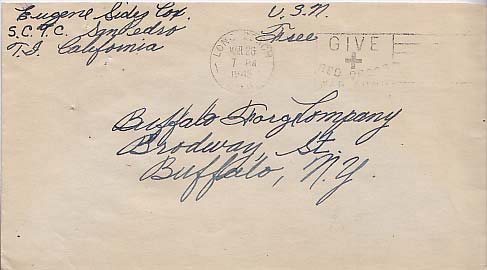 Eugene Sidey Cox. U.S.N.
S.C.T.C. San Pedro Free
T.I. California
LONG BEACH
MAR 26
7 PM
1945
GIVE
+
RED CROSS
Buffalo Forg Company
Brodway St.
Buffalo, N.Y.